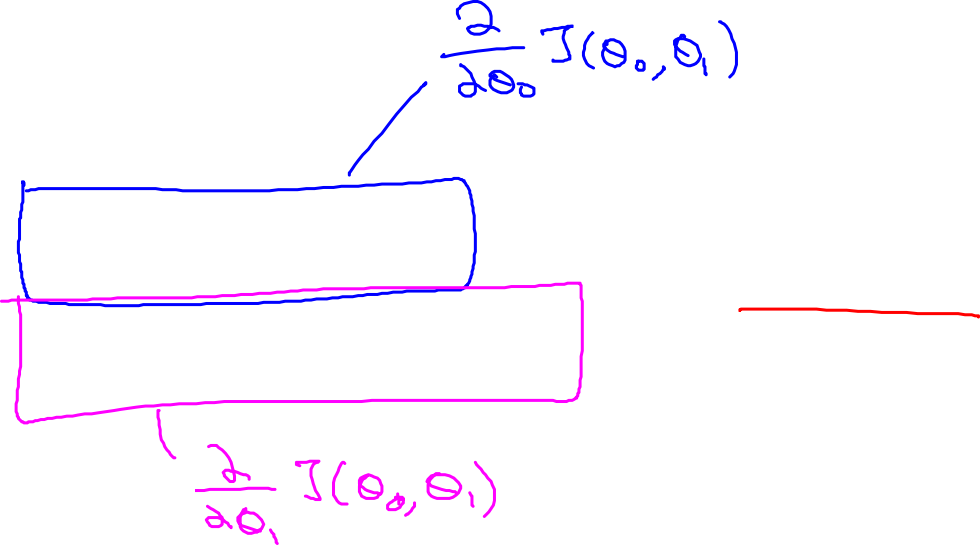 ∂/∂θ₀ J(θ₀, θ₁)
∂/∂θ₁ J(θ₀, θ₁)